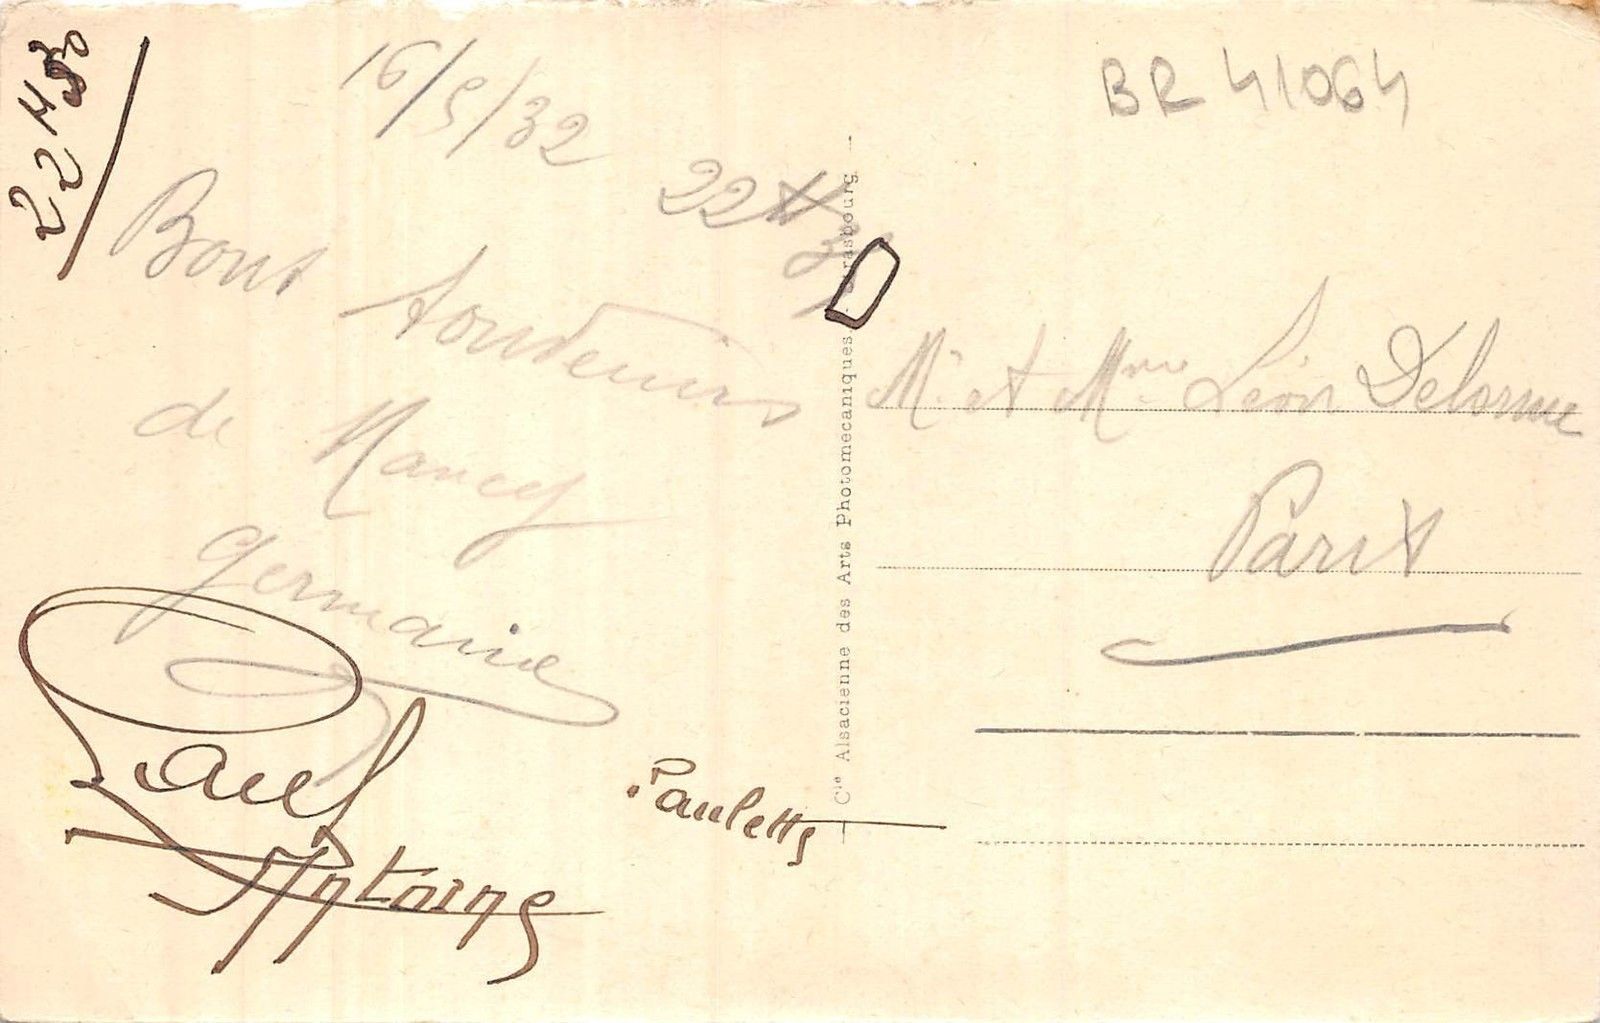 BR 41064
16/5/32
Bons souvenirs
de Nancy
Germaine
Paul
Antoine
Paulette
Cie Alsacienne des Arts Photomecaniques, Strasbourg
Mr et Mme Léon Delorme
Paris